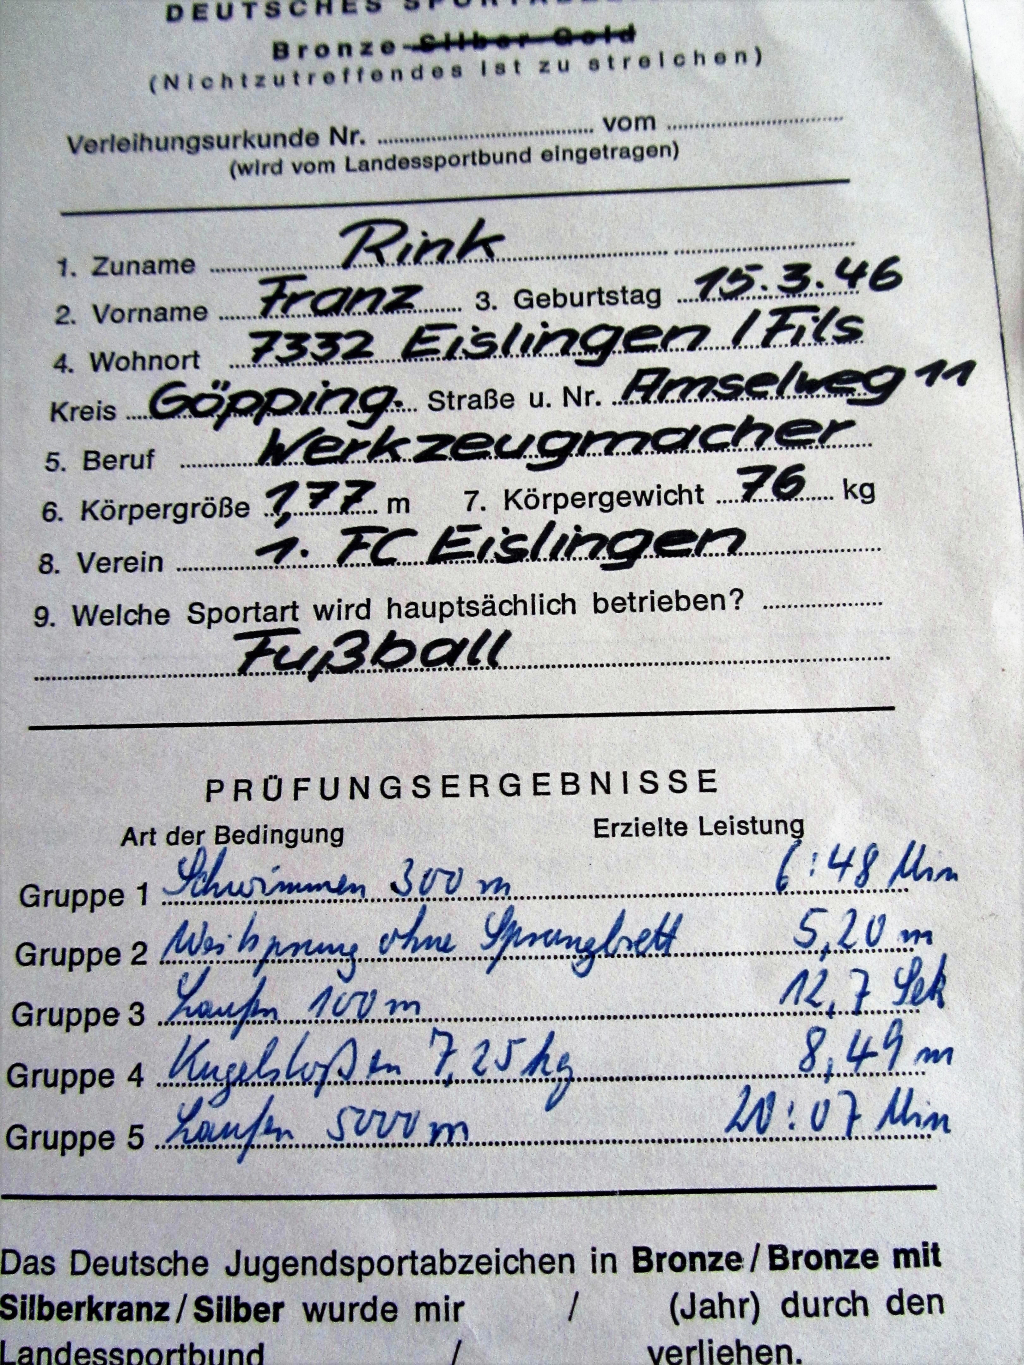 DEUTSCHES
Bronze-Silber-Gold
(Nichtzutreffendes ist zu streichen)
Verleihungsurkunde Nr. ........ vom ........
(wird vom Landessportbund eingetragen)
1. Zuname Rink
2. Vorname Franz 3. Geburtstag 15.3.46
4. Wohnort 7332 Eislingen / Fils
Kreis Göpping. Straße u. Nr. Amselweg 11
5. Beruf Werkzeugmacher
6. Körpergröße 1,77 m 7. Körpergewicht 76 kg
8. Verein 1. FC Eislingen
9. Welche Sportart wird hauptsächlich betrieben?
Fußball
PRÜFUNGSERGEBNISSE
Art der Bedingung Erzielte Leistung
Gruppe 1 Schwimmen 300 m 6:48 Min
Gruppe 2 Weitsprung ohne Sprungbrett 5,20 m
Gruppe 3 Laufen 100 m 12,7 Sek
Gruppe 4 Kugelstoßen 7,25 kg 8,49 m
Gruppe 5 Laufen 5000 m 20:07 Min
Das Deutsche Jugendsportabzeichen in Bronze/Bronze mit
Silberkranz/Silber wurde mir / (Jahr) durch den
Landessportbund / verliehen.